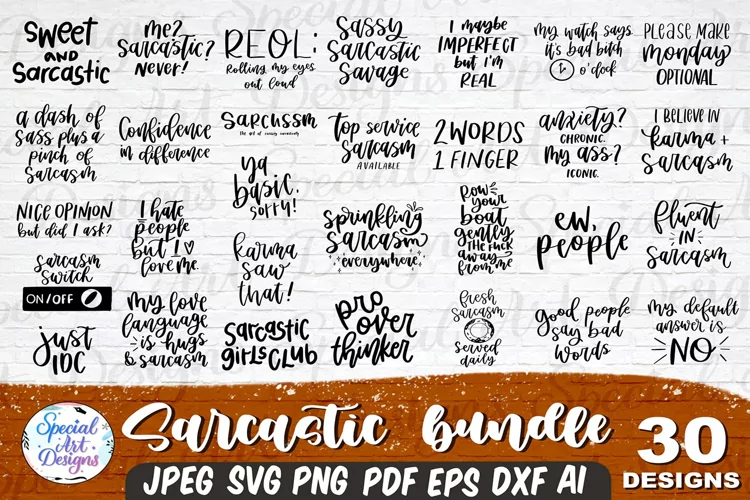 sweet
AND
sarcastic
me?
Sarcastic?
Never!
REOL:
Rolling my eyes
out loud
Sassy
Sarcastic
Savage
I maybe
IMPERFECT
but I'm
REAL
my watch says
it's bad bitch
o'clock
PLEASE MAKE
monday
OPTIONAL
a dash of
sass plus a
pinch of
sarcasm
Confidence
in difference
sapcussm
top service
sarcasm
AVAILABLE
2 WORDS
1 FINGER
anxiety?
CHRONIC.
my ass?
ICONIC.
I BELIEVE IN
karma +
sarcasm
NICE OPINION
but did I ask?
I hate
people
but I
love me.
ya
basic,
sorry!
sprinkling
sarcasm
everywhere
Row
your
boat
gently
THE FUCK
away
from me
ew,
people
fluent
IN
sarcasm
sarcasm
switch
ON/OFF
karma
saw
that!
just
IDC
my love
language
is hugs
& sarcasm
sarcastic
girls club
pro
over
thinker
fresh
sarcasm
served
daily
good people
say bad
words
my default
answer is
NO
Special
Art
Designs
Sarcastic bundle
30
DESIGNS
JPEG SVG PNG PDF EPS DXF AI